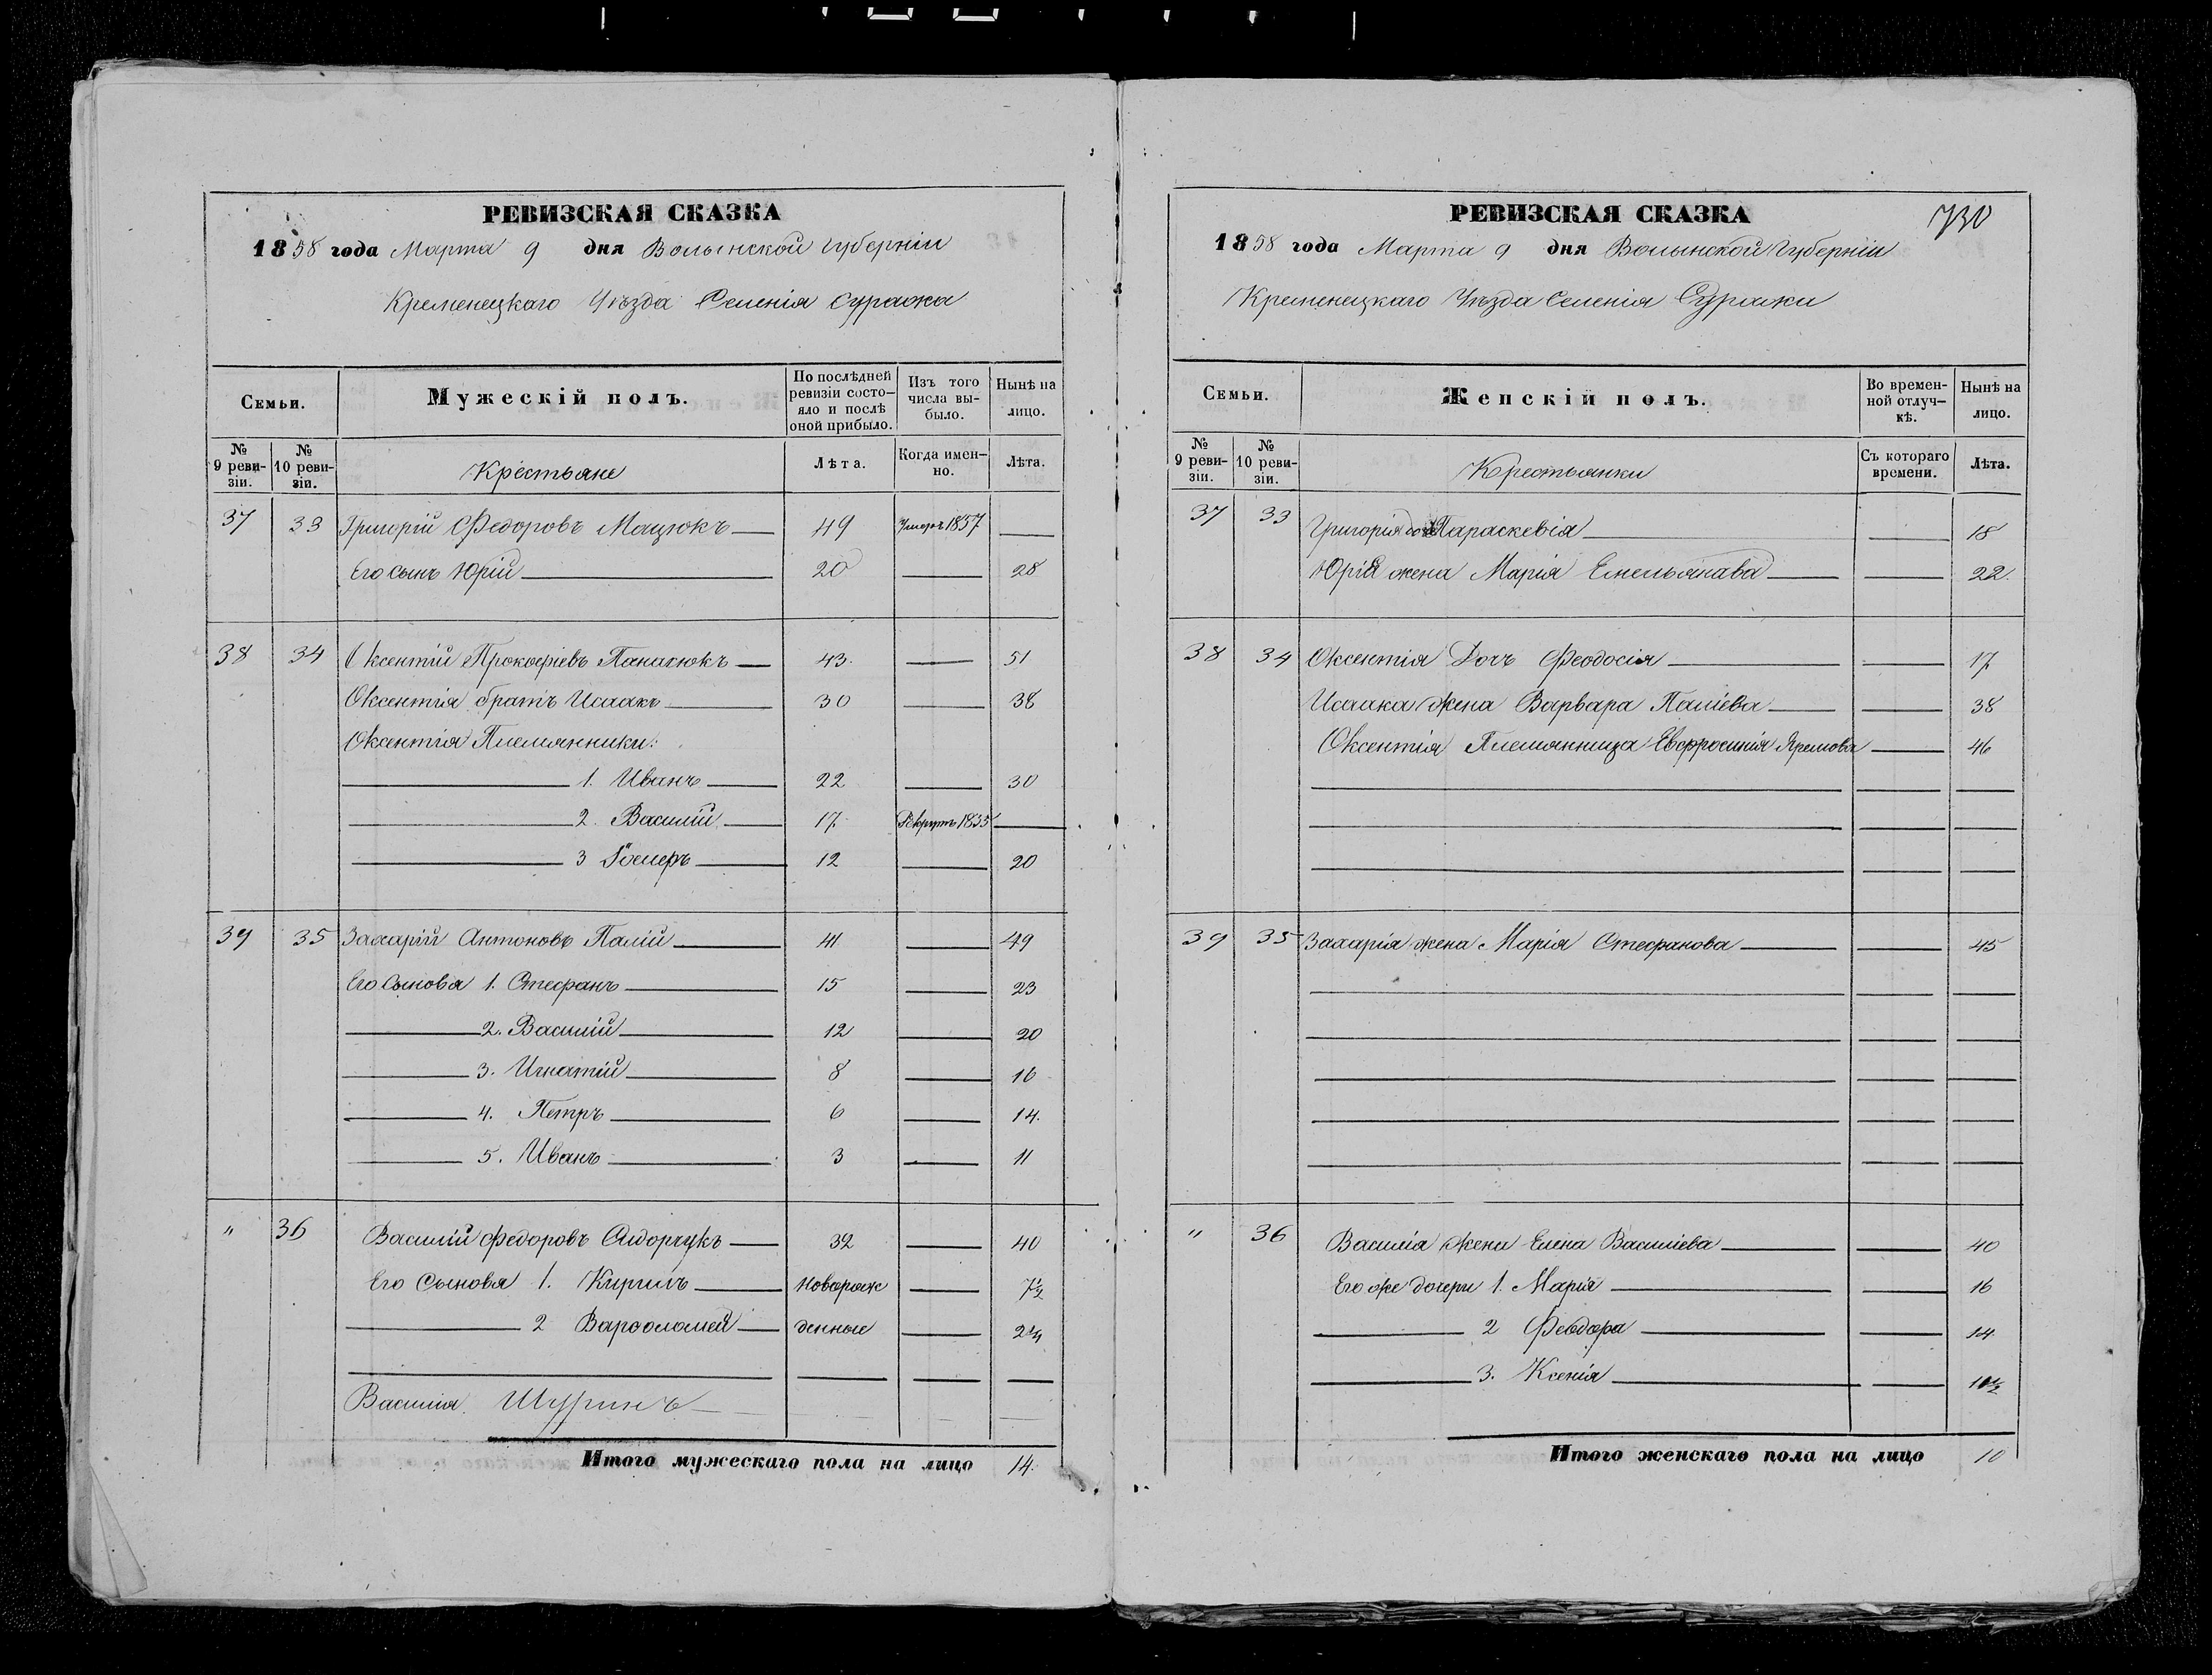 РЕВИЗСКАЯ СКАЗКА
1858 года Марта 9 дня Волынской губерніи
Кременецкаго Уѣзда Селенія Суража
Семьи. Мужескій полъ. По послѣдней ревизіи состояло и послѣ оной прибыло. Изъ того числа выбыло. Нынѣ на лицо.
№ 9 ревизіи. № 10 ревизіи. Крестьяне Лѣта. Когда именно. Лѣта.
37 33 Григорій Федоровъ Мацюкъ 49 Умеръ 1857
Его сынъ Юрій 20 28
38 34 Оксентій Прокофіевъ Панасюкъ 43 51
Оксентія братъ Исаакъ 30 38
Оксентія Племянники:
1. Иванъ 22 30
2. Василій 17 Рекрутъ 1855
3 12 20
39 35 Захарій Антоновъ Палій 41 49
Его Сыновья 1. Стефанъ 15 23
2. Василій 12 20
3. Игнатій 8 16
4. Петръ 6 14.
5. Иванъ 3 11
" 36 Василій Федоровъ Сидорчукъ 32 40
Его Сыновья 1. Кирилъ новорож 7½
2 Варфоломей денные 2¼
Василія Шуринъ
Итого мужескаго пола на лицо 14.
730
РЕВИЗСКАЯ СКАЗКА
1858 года Марта 9 дня Волынской Губерніи
Кременецкаго Уѣзда Селенія Суражи
Семьи. Женскій полъ. Во временной отлучкѣ. Нынѣ на лицо.
№ 9 ревизіи. № 10 ревизіи. Крестьянки Съ котораго времени. Лѣта.
37 33 Григорія дочь Параскевія 18
Юрія жена Марія Емельянава 22.
38 34 Оксентія Дочь Феодосія 17
Исаака Жена Варвара Паліева 38
Оксентія Племянница Евфросинія Яремова 46
39 35 Захарія жена Марія Стефанова 45
" 36 Василія Жена Елена Василіева 40
Его же дочери 1. Марія 16
2 Феодора 14
3. Ксенія
Итого женскаго пола на лицо 10